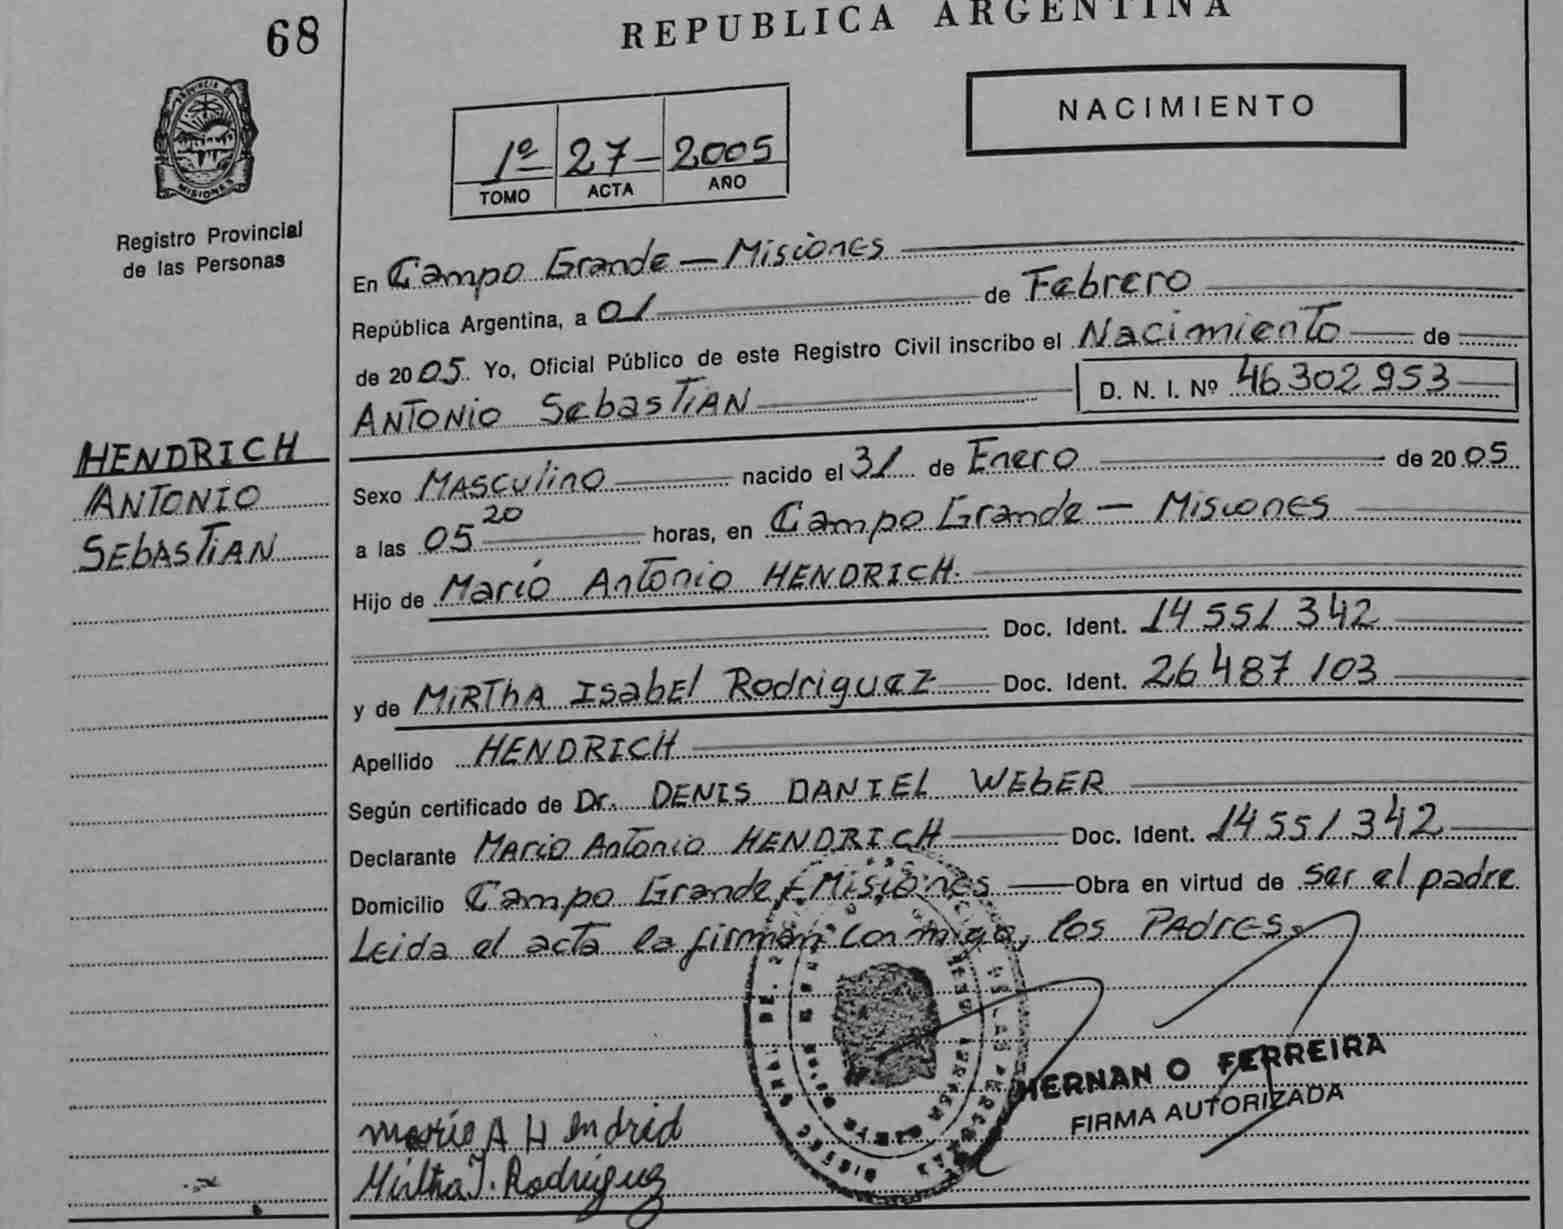 68
REPUBLICA ARGENTINA
NACIMIENTO
1º 27- 2005
TOMO ACTA AÑO
PROVINCIA D
MISIONES
Registro Provincial
de las Personas
En Campo Grande - Misiones
República Argentina, a 01 de Febrero
de 2005. Yo, Oficial Público de este Registro Civil inscribo el Nacimiento de
ANTONIO SebasTIAN D. N. I. Nº 46302953
HENDRICH
ANTONIO
SEbASTIAN
Sexo MASculino nacido el 31 de Enero de 2005
a las 05 20 horas, en Campo Grande - Misiones
Hijo de Mario Antonio HENDRICH.
Doc. Ident. 14 551 342
y de MiRThA IsabEl Rodriguez Doc. Ident. 26 487 103
Apellido HENDRICH
Según certificado de Dr. DENIS DANIEL WEbER
Declarante Mario Antonio HENDRICH Doc. Ident. 14 551 342
Domicilio Campo Grande, Misiones Obra en virtud de ser el padre
Leida el acta la firman con migo, los PAdres.
HERNAN O FERREIRA
FIRMA AUTORIZADA
Mario A Hendrich
Mirtha I. Rodriguez